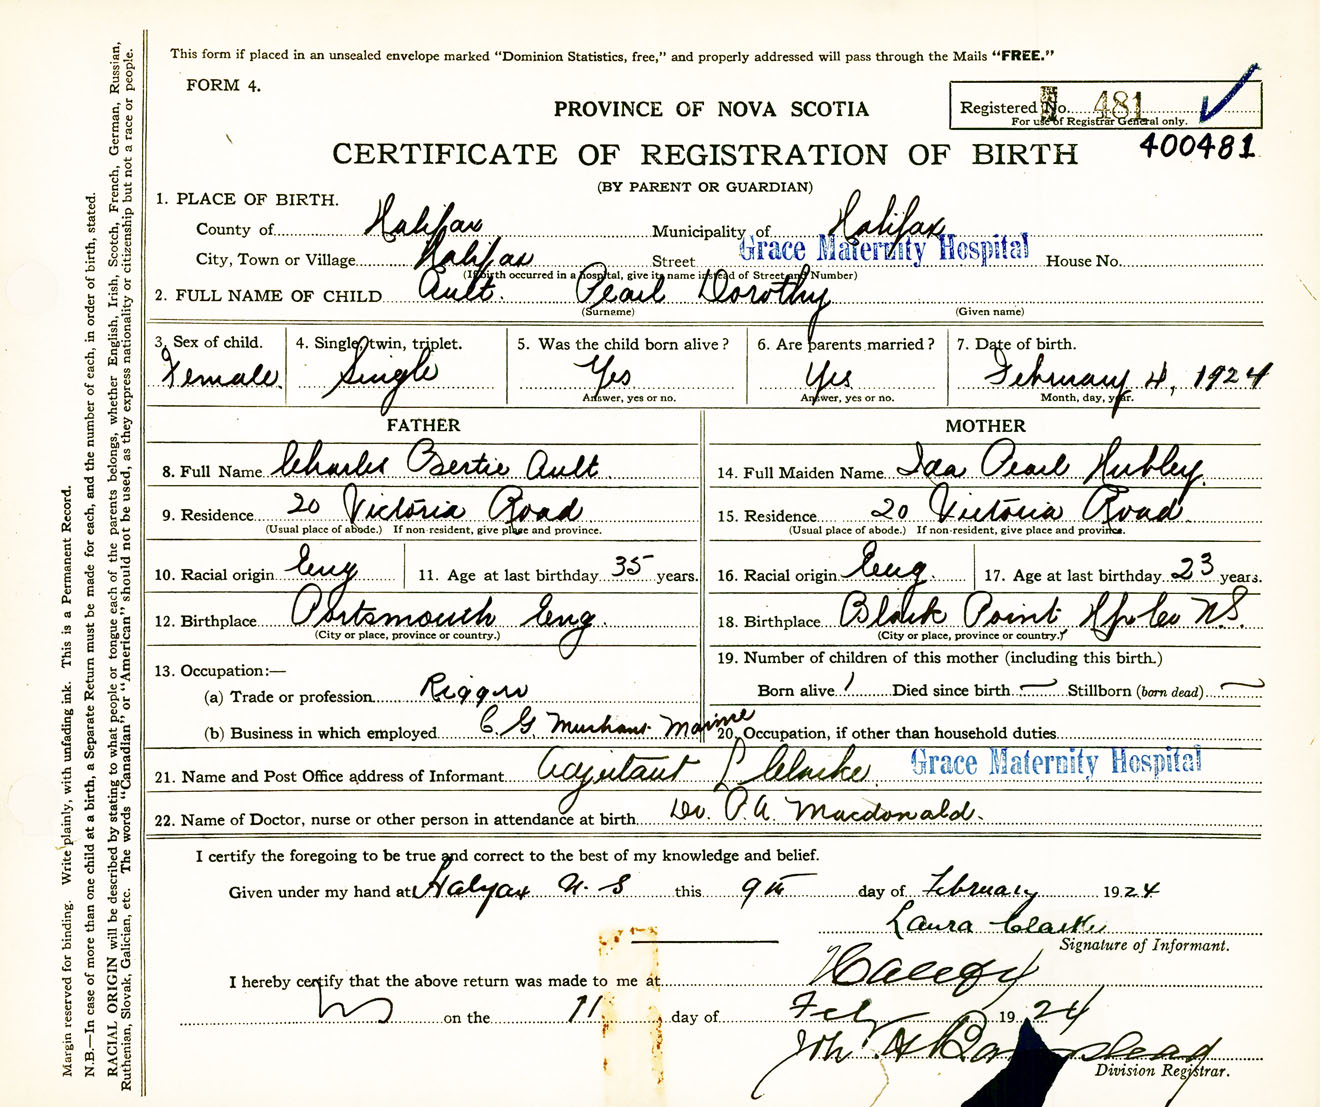 This form if placed in an unsealed envelope marked "Dominion Statistics, free," and properly addressed will pass through the Mails "FREE."
FORM 4.
PROVINCE OF NOVA SCOTIA
Registered No. 481
For use of Registrar General only.
400481
CERTIFICATE OF REGISTRATION OF BIRTH
(BY PARENT OR GUARDIAN)
1. PLACE OF BIRTH.
County of Halifax Municipality of Halifax
City, Town or Village Halifax Street Grace Maternity Hospital House No.
(If birth occurred in a hospital, give its name instead of Street and Number)
2. FULL NAME OF CHILD Ault. Pearl Dorothy
(Surname) (Given name)
3. Sex of child. 4. Single, twin, triplet. 5. Was the child born alive? 6. Are parents married? 7. Date of birth.
Female. Single Yes Yes February 4, 1924
Answer, yes or no. Answer, yes or no. Month, day, year.
FATHER MOTHER
8. Full Name Charles Bertie Ault. 14. Full Maiden Name Ida Pearl Hubley.
9. Residence 20 Victoria Road 15. Residence 20 Victoria Road.
(Usual place of abode.) If non-resident, give place and province. (Usual place of abode.) If non-resident, give place and province.
10. Racial origin Eng 11. Age at last birthday 35 years. 16. Racial origin Eng. 17. Age at last birthday 23 years.
12. Birthplace Portsmouth Eng. 18. Birthplace Black Point Hfx Co N.S.
(City or place, province or country.) (City or place, province or country.)
13. Occupation:— 19. Number of children of this mother (including this birth.)
(a) Trade or profession Rigger Born alive 1 Died since birth — Stillborn (born dead) —
(b) Business in which employed C. G. Merchant Marine 20. Occupation, if other than household duties
21. Name and Post Office address of Informant Adjutant L Clarke. Grace Maternity Hospital
22. Name of Doctor, nurse or other person in attendance at birth Dr. P.A. Macdonald.
I certify the foregoing to be true and correct to the best of my knowledge and belief.
Given under my hand at Halifax N. S this 9th day of February 1924
Laura Clarke
Signature of Informant.
I hereby certify that the above return was made to me at Halifax
NS on the 11 day of Feb 1924
Division Registrar.
Margin reserved for binding. Write plainly, with unfading ink. This is a Permanent Record.
N.B.—In case of more than one child at a birth, a Separate Return must be made for each, and the number of each, in order of birth, stated.
RACIAL ORIGIN will be described by stating to what people or tongue each of the parents belongs, whether English, Irish, Scotch, French, German, Russian,
Ruthenian, Slovak, Galician, etc. The words "Canadian" or "American" should not be used, as they express nationality or citizenship but not a race or people.